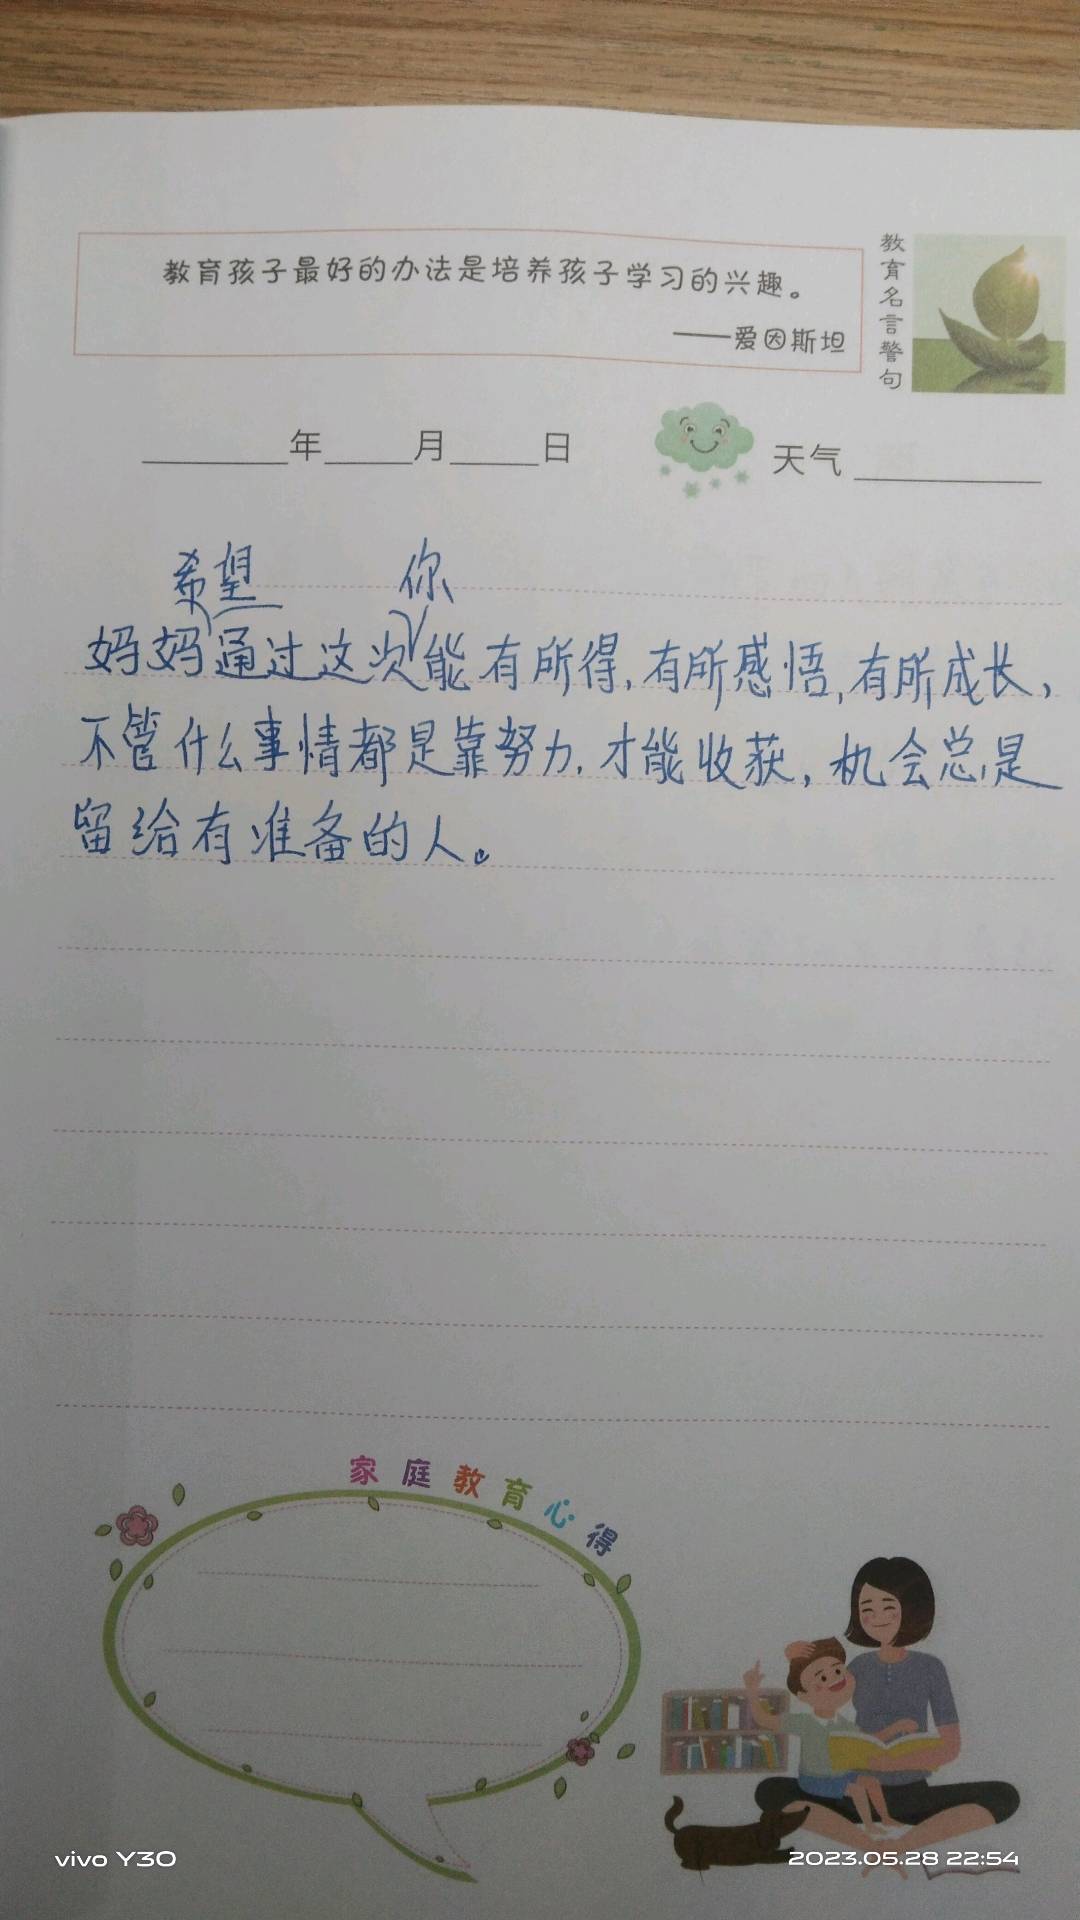 教育孩子最好的办法是培养孩子学习的兴趣。
——爱因斯坦
教育名言警句
年 月 日 天气
希望 你
妈妈通过这次能有所得,有所感悟,有所成长,
不管什么事情都是靠努力,才能收获,机会总是
留给有准备的人。
家庭教育心得
vivo Y30
2023.05.28 22:54